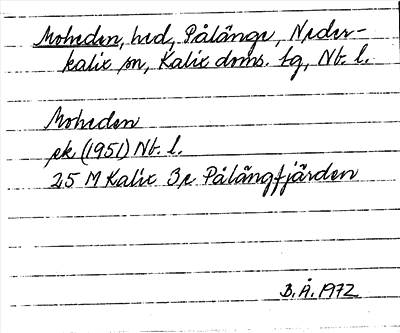 Moheden, hed, Pålänge, Neder-
kalix sn, Kalix doms. tg, Nb. l.
Moheden
ek (1951) Nb. l.
25 M Kalix 3e Pålängfjärden
B. Å. 1972